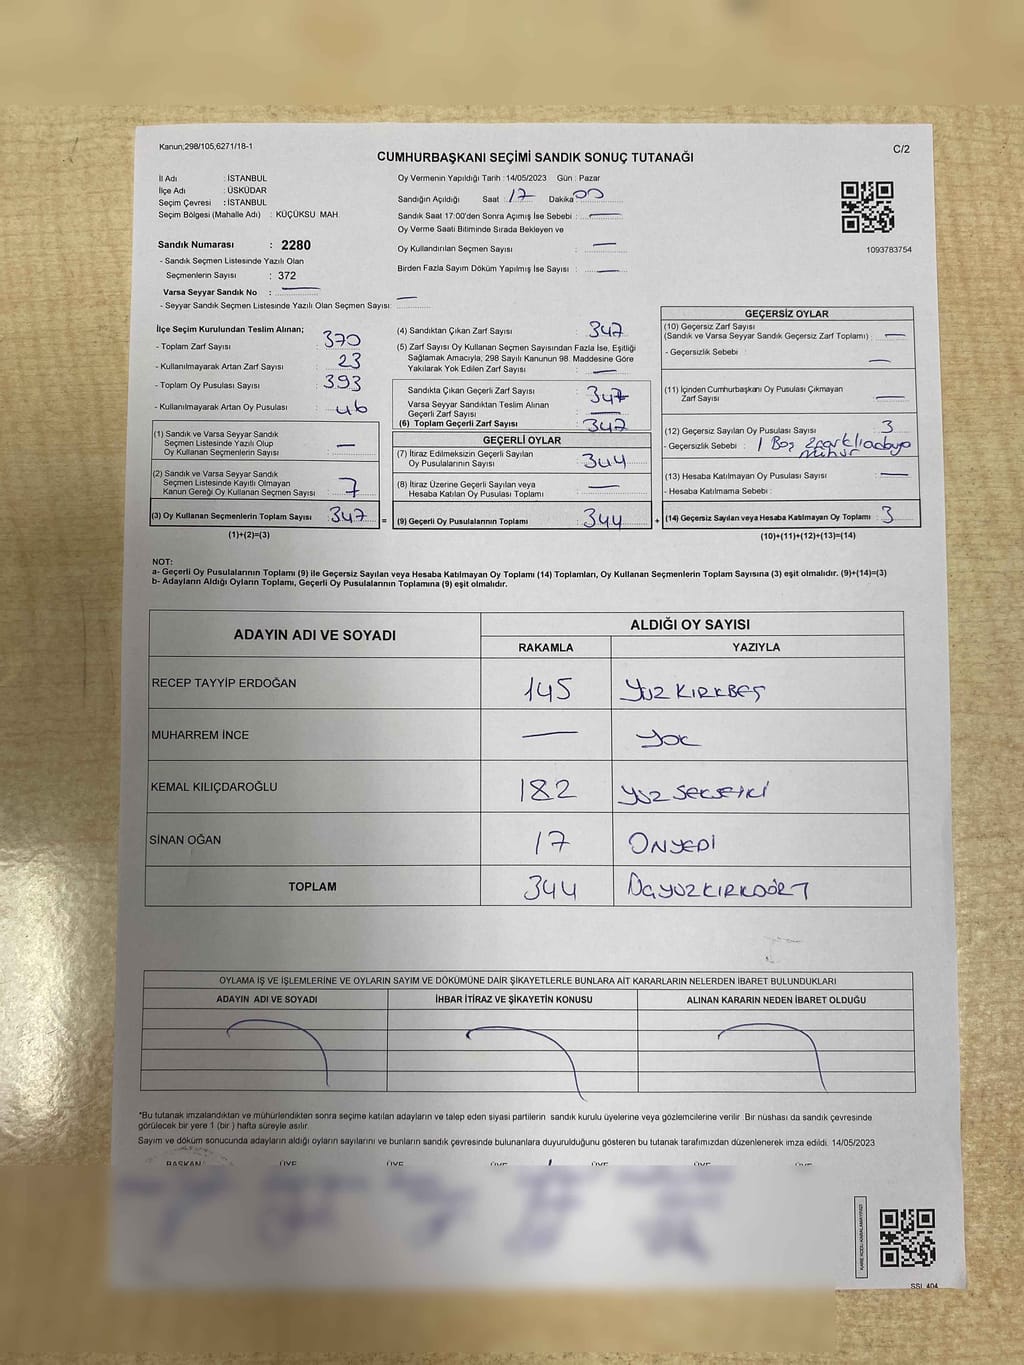 Kanun;298/105,6271/18-1
C/2
CUMHURBAŞKANI SEÇİMİ SANDIK SONUÇ TUTANAĞI
İl Adı : İSTANBUL
İlçe Adı : ÜSKÜDAR
Seçim Çevresi : İSTANBUL
Seçim Bölgesi (Mahalle Adı) : KÜÇÜKSU MAH.
Oy Vermenin Yapıldığı Tarih : 14/05/2023 Gün : Pazar
Sandığın Açıldığı Saat : 17 Dakika : 00
Sandık Saat 17:00'den Sonra Açımış İse Sebebi : —
Oy Verme Saati Bitiminde Sırada Bekleyen ve
Oy Kullandırılan Seçmen Sayısı : —
Birden Fazla Sayım Döküm Yapılmış İse Sayısı : —
1093783754
Sandık Numarası : 2280
- Sandık Seçmen Listesinde Yazılı Olan
Seçmenlerin Sayısı : 372
Varsa Seyyar Sandık No : —
- Seyyar Sandık Seçmen Listesinde Yazılı Olan Seçmen Sayısı: —
İlçe Seçim Kurulundan Teslim Alınan;
- Toplam Zarf Sayısı : 370
- Kullanılmayarak Artan Zarf Sayısı : 23
- Toplam Oy Pusulası Sayısı : 393
- Kullanılmayarak Artan Oy Pusulası : 46
(1) Sandık ve Varsa Seyyar Sandık
Seçmen Listesinde Yazılı Olup
Oy Kullanan Seçmenlerin Sayısı : —
(2) Sandık ve Varsa Seyyar Sandık
Seçmen Listesinde Kayıtlı Olmayan
Kanun Gereği Oy Kullanan Seçmen Sayısı : 7
(3) Oy Kullanan Seçmenlerin Toplam Sayısı : 347
(1)+(2)=(3)
(4) Sandıktan Çıkan Zarf Sayısı : 347
(5) Zarf Sayısı Oy Kullanan Seçmen Sayısından Fazla İse, Eşitliği
Sağlamak Amacıyla, 298 Sayılı Kanunun 98. Maddesine Göre
Yakılarak Yok Edilen Zarf Sayısı : —
Sandıkta Çıkan Geçerli Zarf Sayısı : 347
Varsa Seyyar Sandıktan Teslim Alınan
Geçerli Zarf Sayısı : —
(6) Toplam Geçerli Zarf Sayısı : 347
GEÇERLİ OYLAR
(7) İtiraz Edilmeksizin Geçerli Sayılan
Oy Pusulalarının Sayısı : 344
(8) İtiraz Üzerine Geçerli Sayılan veya
Hesaba Katılan Oy Pusulası Toplamı : —
= (9) Geçerli Oy Pusulalarının Toplamı : 344 +
GEÇERSİZ OYLAR
(10) Geçersiz Zarf Sayısı
(Sandık ve Varsa Seyyar Sandık Geçersiz Zarf Toplamı) : —
- Geçersizlik Sebebi : —
(11) İçinden Cumhurbaşkanı Oy Pusulası Çıkmayan
Zarf Sayısı : —
(12) Geçersiz Sayılan Oy Pusulası Sayısı : 3
- Geçersizlik Sebebi : 1 Boş 2 farklı adaya
mühür
(13) Hesaba Katılmayan Oy Pusulası Sayısı : —
- Hesaba Katılmama Sebebi :
(14) Geçersiz Sayılan veya Hesaba Katılmayan Oy Toplamı : 3
(10)+(11)+(12)+(13)=(14)
NOT:
a- Geçerli Oy Pusulalarının Toplamı (9) ile Geçersiz Sayılan veya Hesaba Katılmayan Oy Toplamı (14) Toplamları, Oy Kullanan Seçmenlerin Toplam Sayısına (3) eşit olmalıdır. (9)+(14)=(3)
b- Adayların Aldığı Oyların Toplamı, Geçerli Oy Pusulalarının Toplamına (9) eşit olmalıdır.
ADAYIN ADI VE SOYADI
ALDIĞI OY SAYISI
RAKAMLA YAZIYLA
RECEP TAYYİP ERDOĞAN 145 YÜZ KIRKBEŞ
MUHARREM İNCE — YOK
KEMAL KILIÇDAROĞLU 182 YÜZ SEKSEİKİ
SİNAN OĞAN 17 ONYEDİ
TOPLAM 344 ÜÇYÜZKIRKDÖRT
OYLAMA İŞ VE İŞLEMLERİNE VE OYLARIN SAYIM VE DÖKÜMÜNE DAİR ŞİKAYETLERLE BUNLARA AİT KARARLARIN NELERDEN İBARET BULUNDUKLARI
ADAYIN ADI VE SOYADI İHBAR İTİRAZ VE ŞİKAYETİN KONUSU ALINAN KARARIN NEDEN İBARET OLDUĞU
*Bu tutanak imzalandıktan ve mühürlendikten sonra seçime katılan adayların ve talep eden siyasi partilerin sandık kurulu üyelerine veya gözlemcilerine verilir. Bir nüshası da sandık çevresinde
görülecek bir yere 1 (bir ) hafta süreyle asılır.
Sayım ve döküm sonucunda adayların aldığı oyların sayılarını ve bunların sandık çevresinde bulunanlara duyurulduğunu gösteren bu tutanak tarafımızdan düzenlenerek imza edildi. 14/05/2023
BAŞKAN ÜYE ÜYE ÜYE ÜYE ÜYE ÜYE
SSL 404